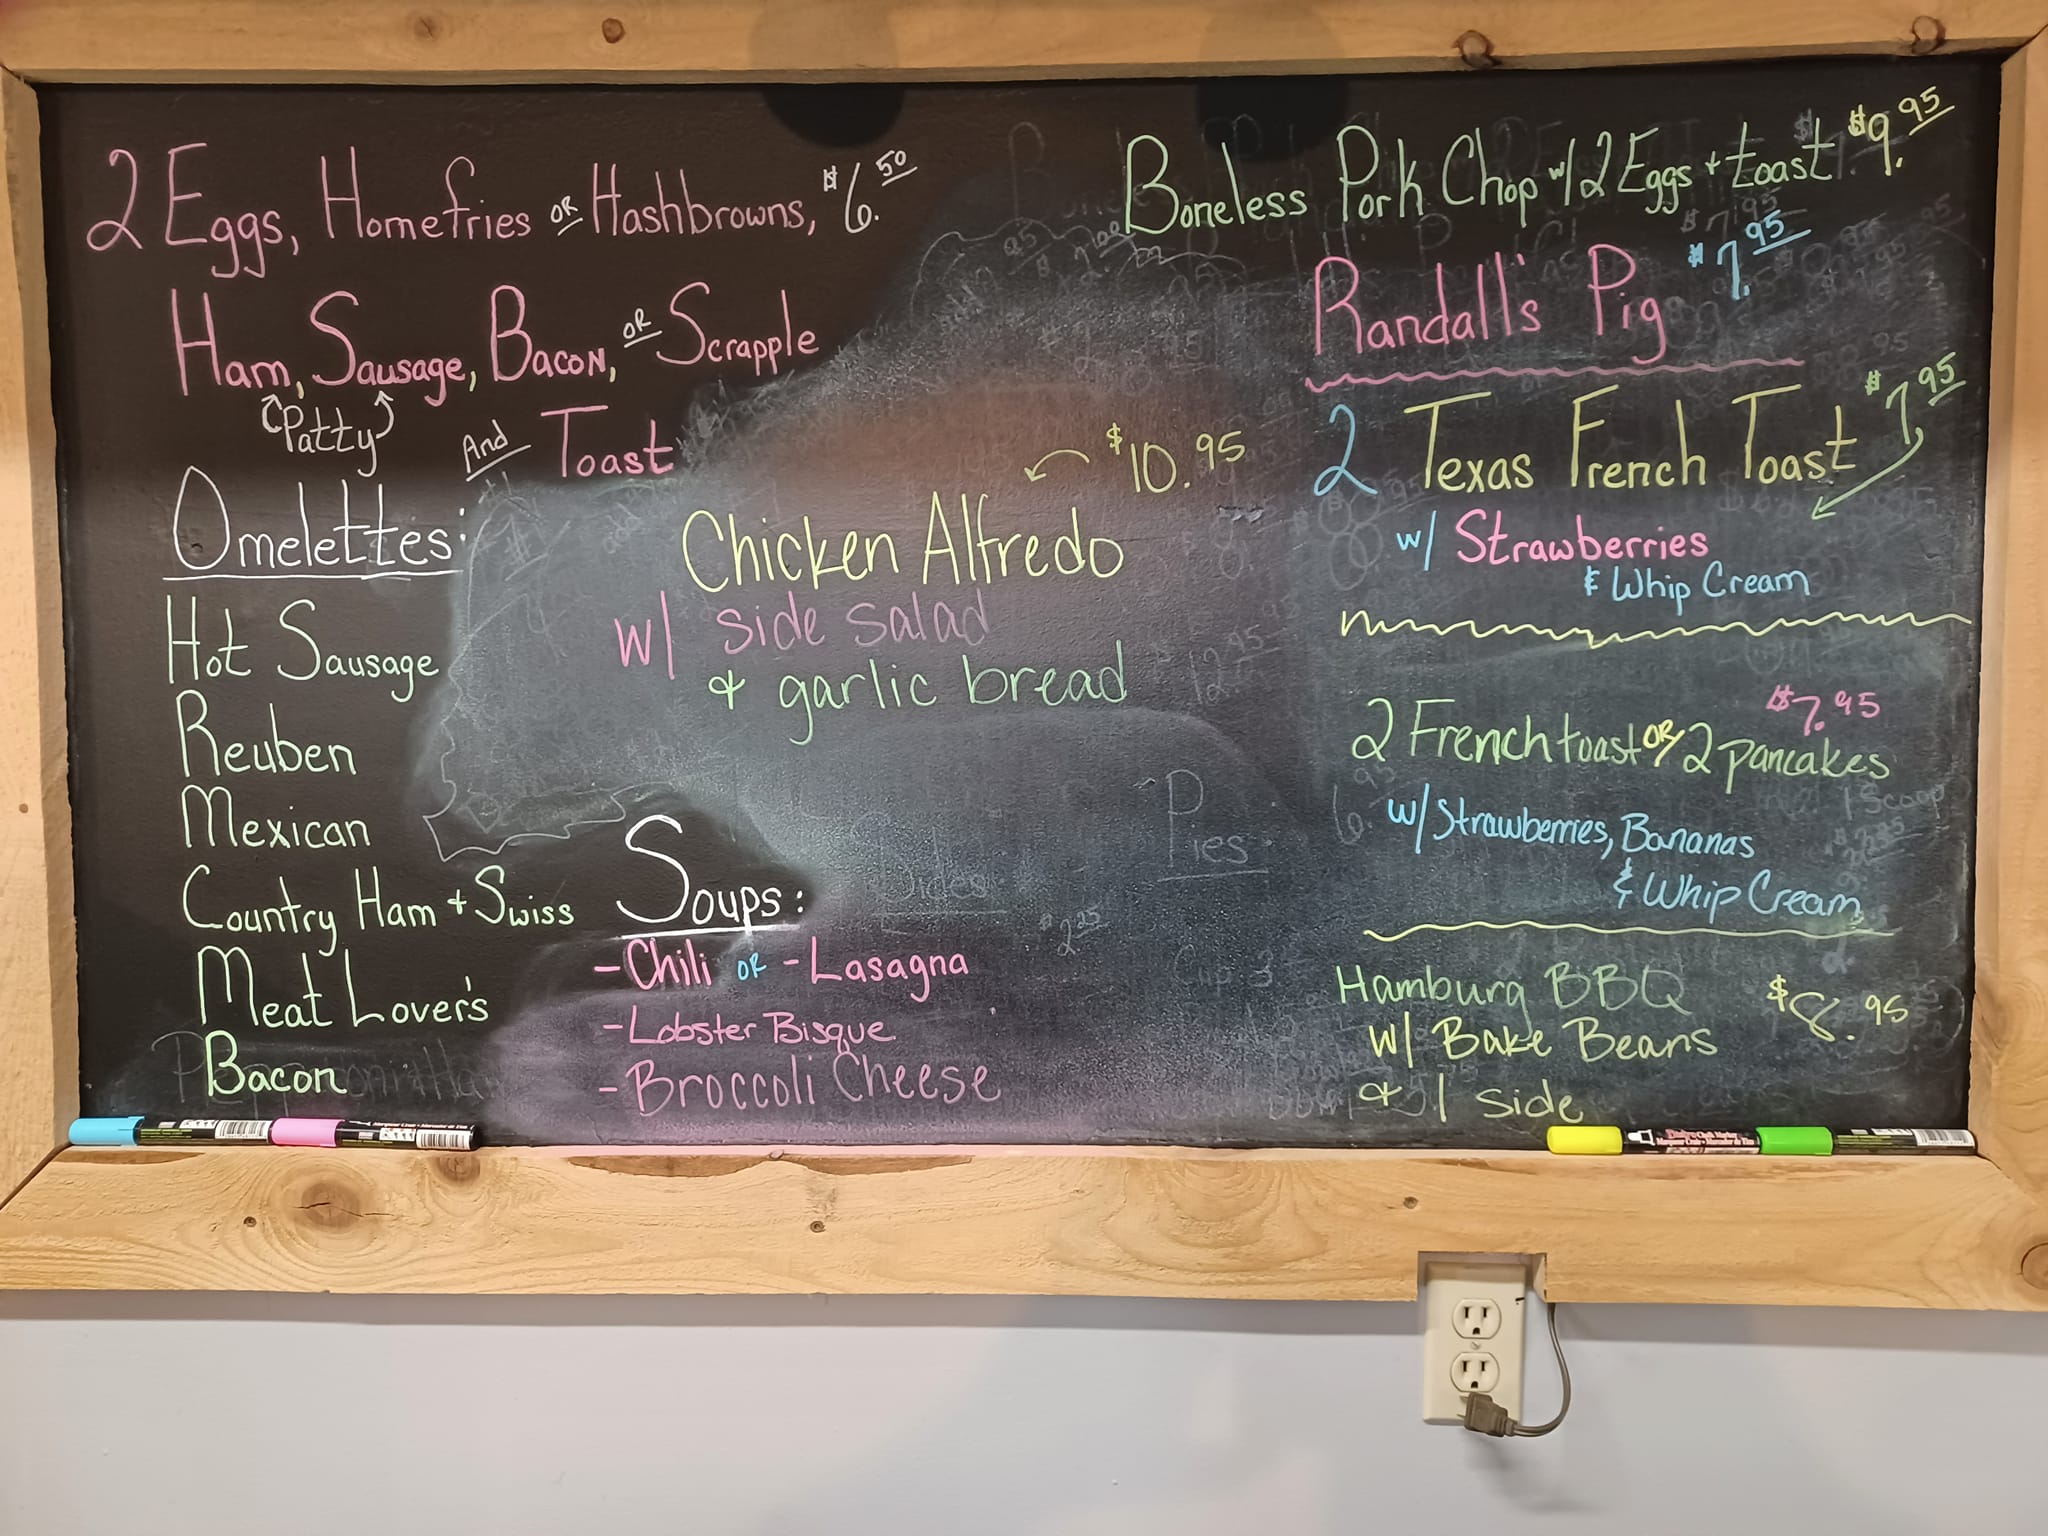 2 Eggs, Homefries OR Hashbrowns, $6.50
Ham, Sausage, Bacon, OR Scrapple
Patty
And Toast
Omelettes:
Hot Sausage
Reuben
Mexican
Country Ham + Swiss
Meat Lover's
Bacon
$10.95
Chicken Alfredo
w/ side salad
& garlic bread
Pies:
Sides:
$2.25
Soups:
- Chili OR - Lasagna
- Lobster Bisque
- Broccoli Cheese
Boneless Pork Chop w/ 2 Eggs + toast $9.95
Randall's Pig $7.95
2 Texas French Toast $7.95
w/ Strawberries
& Whip Cream
$7.95
2 French toast OR 2 pancakes
w/ Strawberries, Bananas
& Whip Cream
Hamburg BBQ
w/ Bake Beans $8.95
& 1 side